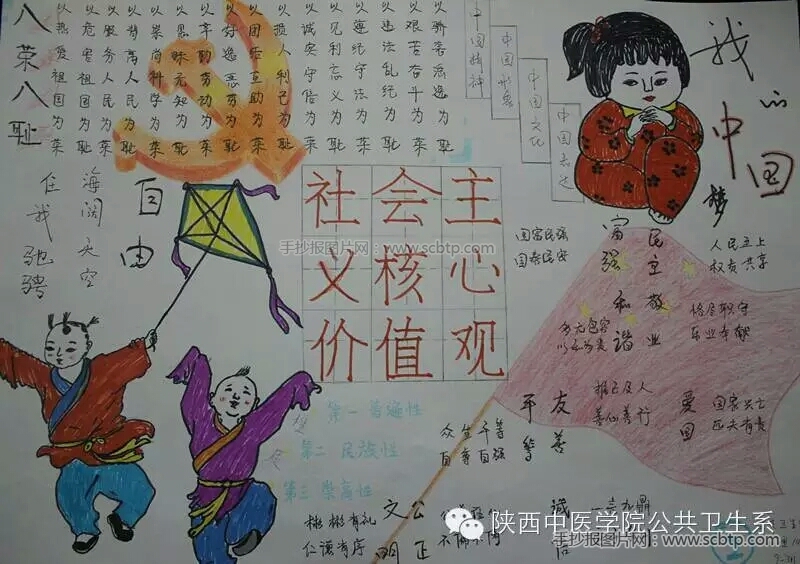 八荣八耻
以热爱祖国为荣
以危害祖国为耻
以服务人民为荣
以背离人民为耻
以崇尚科学为荣
以愚昧无知为耻
以辛勤劳动为荣
以好逸恶劳为耻
以团结互助为荣
以损人利己为耻
以诚实守信为荣
以见利忘义为耻
以遵纪守法为荣
以违法乱纪为耻
以艰苦奋斗为荣
以骄奢淫逸为耻
中国精神
中国形象
中国文化
中国表达
我的中国梦
自由
海阔天空
任我驰骋
社会主
义核心
价值观
手抄报图片网:www.scbtp.com
富强
国富民强
国泰民安
民主
人民至上
权责共享
和谐
多元包容
以和为贵
敬业
恪尽职守
乐业奉献
爱国
国家兴亡
匹夫有责
友善
推己及人
善心善行
平等
众生平等
自尊自强
第一 普遍性
第二 民族性
第三 崇高性
文明
彬彬有礼
仁德有序
公正
诚信
一言九鼎
陕西中医学院公共卫生系
手抄报图片网:www.scbtp.com